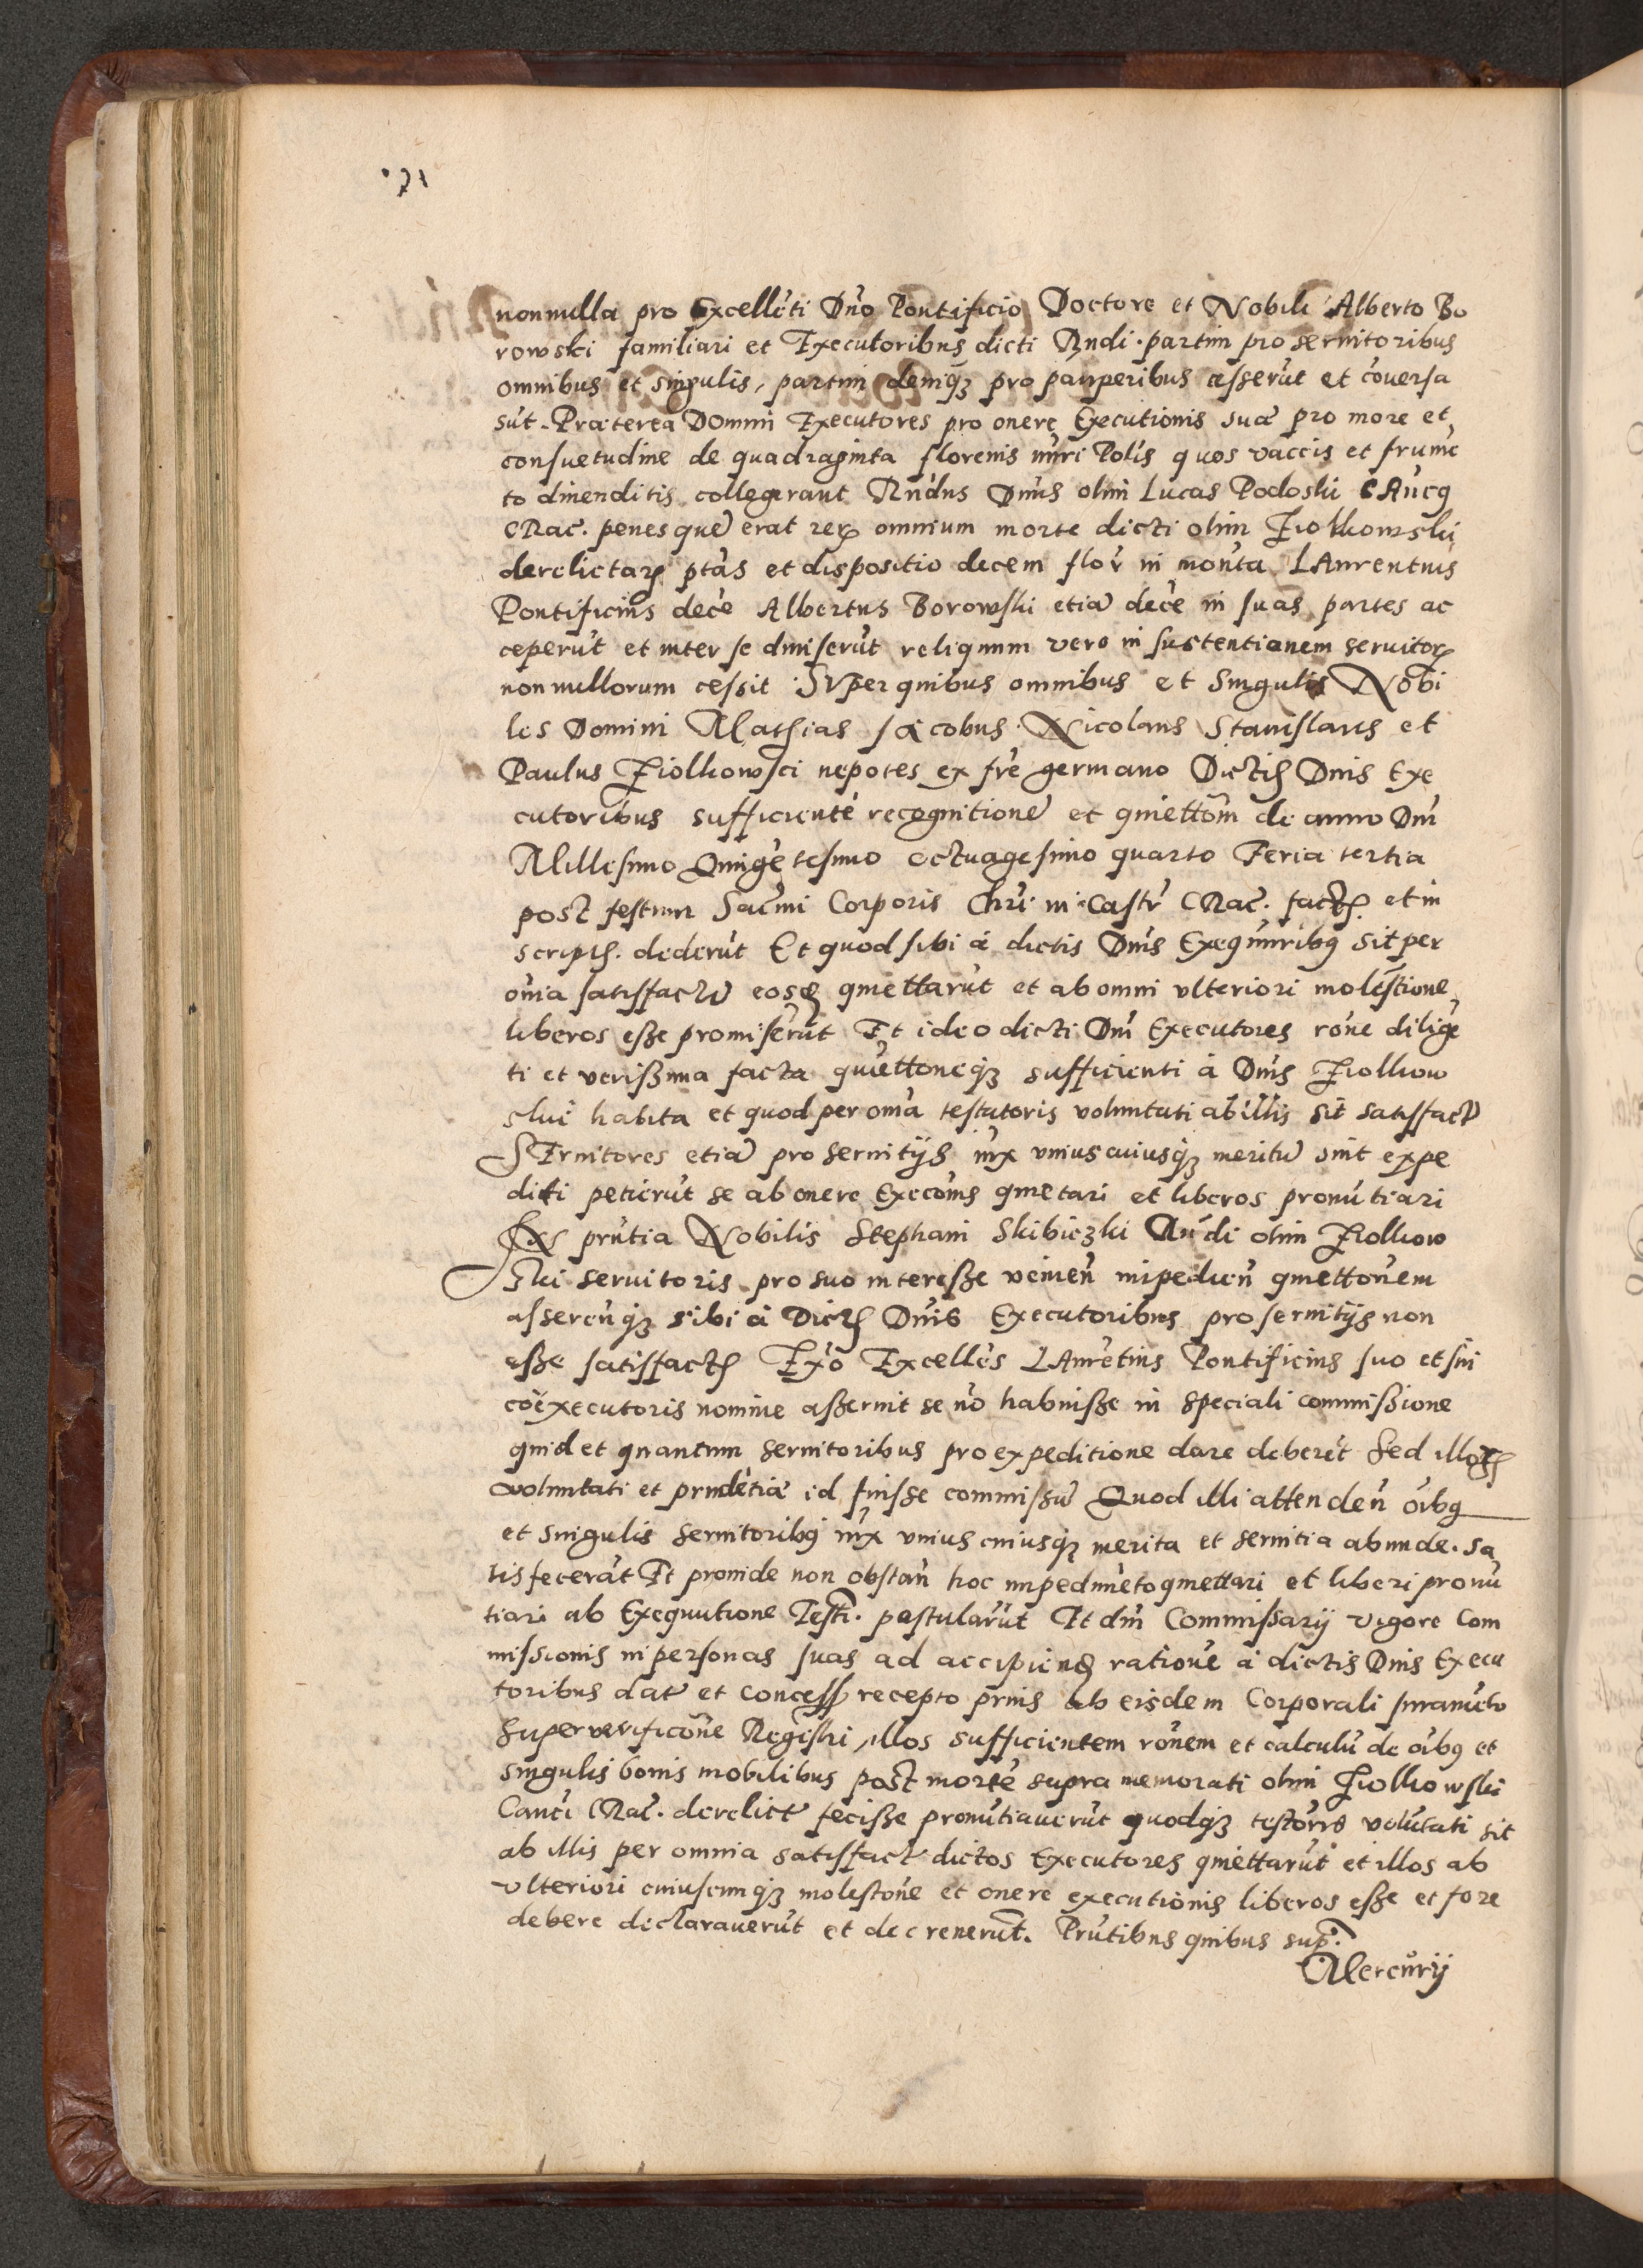 nonnulla pro Excellēti Dño Pontificio Doctore et Nobili Alberto Bo
rowski familiari et Executoribus dicti Rndi. partim pro seruitoribus
omnibus et singulis, partim deniq; pro pauperibus cesserūt et cōuersa
sūt. Præterea Domini Executores pro onere Executionis suæ pro more et
consuetudine de quadraginta florenis nūri Polis quos vaccis et frumē
to diuenditis collegerant Rndus Dnus olim Lucas Podoski CAncq
CRac. penes quē erat rerꝝ omnium morte dicti olim Fiolkowski
derelictarꝝ ptās et dispositio decem flor̄ in monēta LAurentius
Pontificius decē Albertus Borowski etiā decē in suas partes ac
ceperūt et inter se diuiserūt reliquum vero in sustentianem seruitorꝝ
nonnullorum cessit. SVper quibus omnibus et Singulis Nobi
les Domini Mathias Iacobus. Nicolaus Stanislaus et
Paulus Fiolkowsci nepotes ex frē germano Dictis Dnis Exe
cutoribus sufficientē recognitionē et quiettoñm de anno Dni
Millesimo Quingētesimo octuagesimo quarto Feria tertia
post festum Sacrmi Corporis Chri in Castr̄ CRac. fact. et in
script. dederūt Et quod sibi à dictis Dnis Exequutribq sit per
omia satisfactū eosd quiettarūt et ab omni vlteriori molestione
liberos eſſe promiserūt Et ideo dicti Dni Executores rōne diligē
ti et verissima facta quiettoneq; sufficienti à Dnis Fiolkow
skie habita et quod per omia testatoris voluntati ab illis sit satisfactū
SEruitores etiā pro seruitijs iux vniuscuiusq; meritū sint expe
diti petierūt se ab onere Execoñis quietari et liberos pronūtiari
Ex prn̄tia Nobilis Stephani Skibiczki Rndi olim Fiolkow
ski seruitoris pro suo interesse venien̄ impedien̄ quiettoñem
asseren̄q; sibi à Dictis Dnis Executoribus pro seruitijs non
esse satisfact. Exō Excellēs LAurētius Pontificius suo et sui
coexecutoris nomine asseruit se nō habuisse in speciali commissione
quid et quantum seruitoribus pro expeditione dare deberēt Sed illorꝝ
voluntati et prudētiæ id fuisse commissū Quod illi attenden̄ oibq
et singulis seruitoribq iux vnius cuiusq; merita et seruitia abunde. sa
tisfecerāt Et prouide non obstan̄ hoc impedimēto quiettari et liberi pronū
tiari ab Exequutione Testi. postularūt Et dni Commissarij vigore Com
missionis in personas suas ad accipiend rationē à dictis Dnis Execu
toribus dat et Concess recepto prius ab eisdem Corporali iuramēto
super verificoñe Registri, illos sufficientem rōnem et calculū de oibq et
singulis bonis mobilibus post mortē supra memorati olim Fiolkowski
Canci CRac. derelict fecisse pronūtiauerūt quodq; testoris volūtati sit
ab illis per omnia satisfact dictos Executores quiettarūt et illos ab
vlteriori cuiuscunq; molestoñe et onere executionis liberos esse et fore
debere declarauerūt et decreuerūt. Prn̄tibus quibus supr.
Mercurij